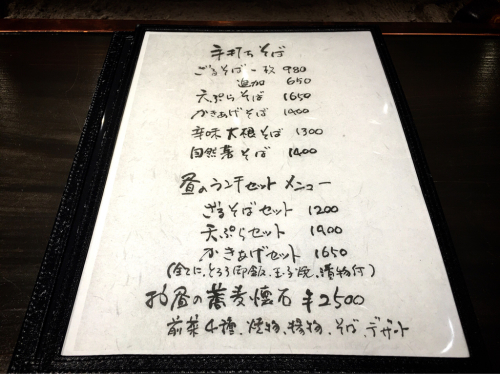 手打ちそば
ざるそば一枚 980
追加 650
天ぷらそば 1650
かきあげそば 1400
辛味大根そば 1300
自然薯そば 1400
昼のランチセットメニュー
ざるそばセット 1200
天ぷらセット 1900
かきあげセット 1650
(全てに、とろろ御飯、玉子焼、漬物付)
お昼の蕎麦懐石 ¥2500
前菜4種、焼物、揚物、そば、デザート